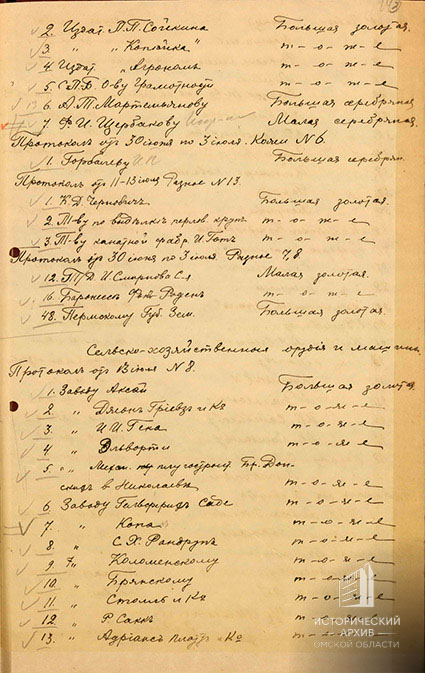 2. Издат. П.П. Сойкина Большая золотая.
3 " " Копѣйка" т-о-ж-е
4 Издат "Агрономъ т-о-ж-е
5. С.П.Б. О-ву Грамотности т-о-ж-е
6. А.Т. Мартемьянову Большая серебряная
7. Ф.И. Щербакову Малая серебряная.
Протоколъ отъ 30 іюня по 3 іюля. Кочеи N 6.
1. Горбачеву Большая серебрян.
Протоколъ от 11-13 іюня Разное N 13.
1. К.Д. Черновичъ. Большая золотая.
2. Т-ву по выдѣлкѣ перлов. крупъ т-о-ж-е
3. Т-ву канатной фабр. И. Готъ т-о-ж-е
Протоколъ от 30 іюня по 3 іюля. Разное 7, 8
12. Т/Д. И. Смирнова С-я Малая золотая.
16. Баронессѣ Роденъ т-о-ж-е
48. Пермскому Губ. Зем. Большая золотая.
Сельско-хозяйственныя орудія и машины
Протоколъ отъ іюля N 8.
1. Заводу Аксай Большая золотая.
2 " Джонъ Гріевзъ и Ко т-о-ж-е
3. " И.И. Гена т-о-ж-е
4 " Эльворти т-о-ж-е
5. " Механ. плугостроит. Бр. Дон-
скихъ въ Николаевѣ т-о-ж-е
6. Заводу Гельферихъ Саде т-о-ж-е
7. " Копа т-о-ж-е
8. " С.Х. Рандрупъ т-о-ж-е
9. " Коломенскому т-о-ж-е
10. " Брянскому т-о-ж-е
11. " Столль и Ко т-о-ж-е
12 " Р. Саккъ т-о-ж-е
13. " Адріансъ Платъ и Ко т-о-ж-е
ИСТОРИЧЕСКИЙ
АРХИВ
ОМСКОЙ ОБЛАСТИ